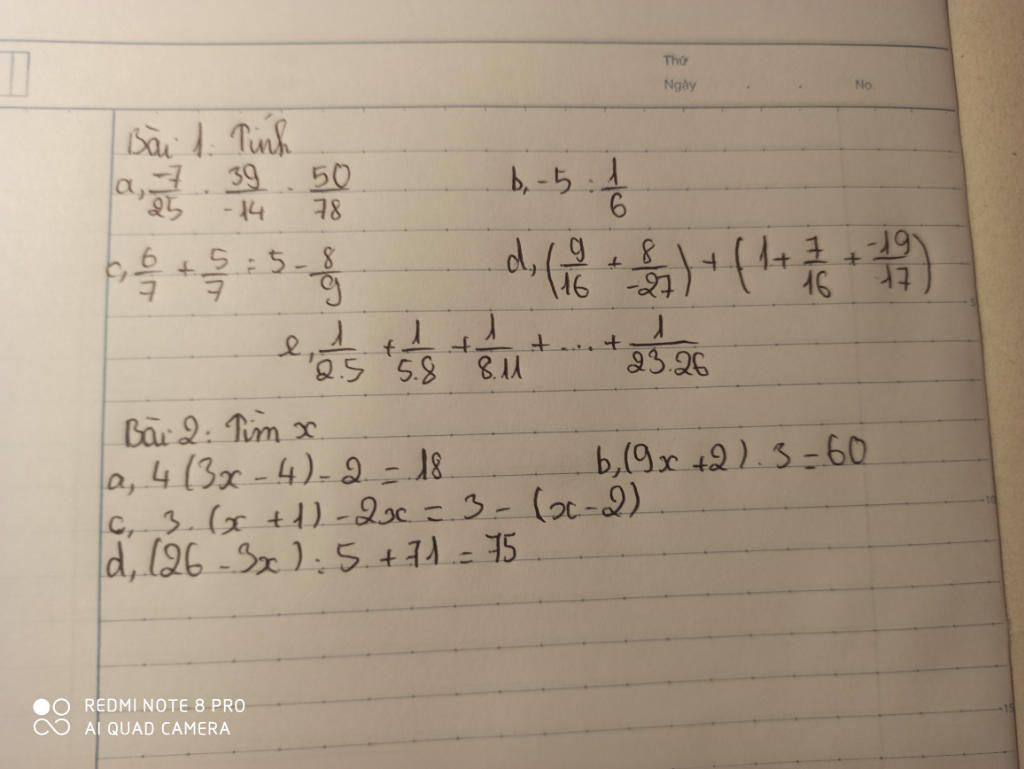 Thứ
Ngày . . No.
Bài 1: Tính
a, -7/25 . 39/-14 . 50/78 b, -5 : 1/6
c, 6/7 + 5/7 : 5 - 8/9 d, (9/16 + 8/-27) + (1 + 7/16 + -19/17)
e, 1/2.5 + 1/5.8 + 1/8.11 + ... + 1/23.26
Bài 2: Tìm x
a, 4(3x - 4) - 2 = 18 b, (9x + 2) . 3 = 60
c, 3. (x + 1) - 2x = 3 - (x - 2)
d, (26 - 3x) : 5 + 71 = 75
5
10
15
REDMI NOTE 8 PRO
AI QUAD CAMERA